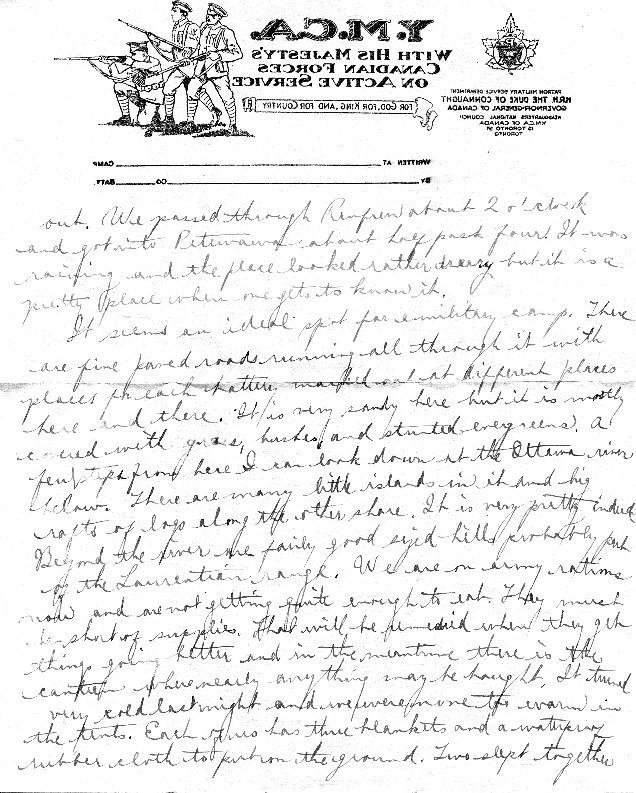 Y.M.C.A.
WITH HIS MAJESTY'S
CANADIAN FORCES
ON ACTIVE SERVICE
FOR GOD, FOR KING, AND FOR COUNTRY
PATRON MILITARY SERVICE DEPARTMENT
H.R.H. THE DUKE OF CONNAUGHT
GOVERNOR-GENERAL OF CANADA
HEADQUARTERS NATIONAL COUNCIL
Y.M.C.A. OF CANADA
TORONTO
WRITTEN AT CAMP
BY CO BATT.
out. We passed through Renfrew about 2 o'clock
and got into Petewawa about half past four. It was
raining and the place looked rather dreary but it is a
pretty place when one gets to know it.
It seems an ideal spot for a military camp. There
are fine paved roads running all through it with
places for each battery marked out at different places
here and there. It is very sandy here but it is mostly
covered with grass, bushes and stunted evergreens. A
few steps from here I can look down at the Ottawa river
below. There are many little islands in it and big
rafts of logs along the other shore. It is very pretty indeed
Beyond the river are fairly good sized hills probably part
of the Laurentian range. We are on army rations
now and are not getting quite enough to eat. They much
be short of supplies. That will be remedied when they get
things going better and in the meantime there is the
canteen where nearly anything may be bought. It turned
very cold last night and we were none too warm in
the tents. Each of us has three blankets and a waterproof
rubber cloth to put on the ground. Two slept together